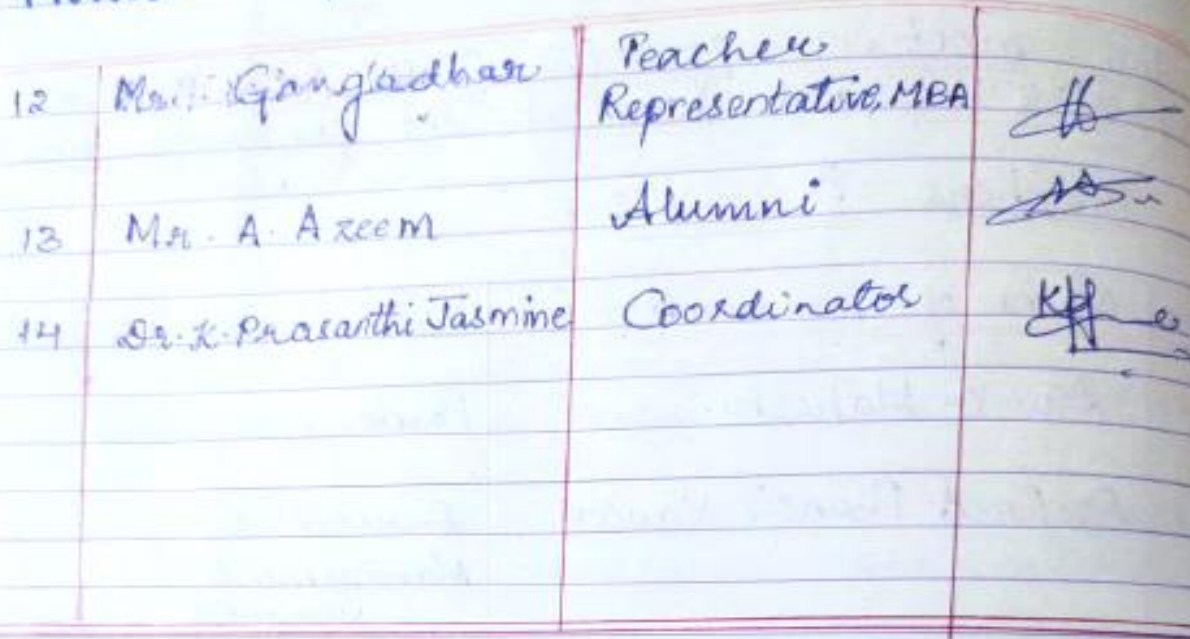 12 Mr. Gangadhar Teacher
Representative, MBA
13 Mr. A. Azeem Alumni
14 Dr. K. Prasanthi Jasmine Coordinator